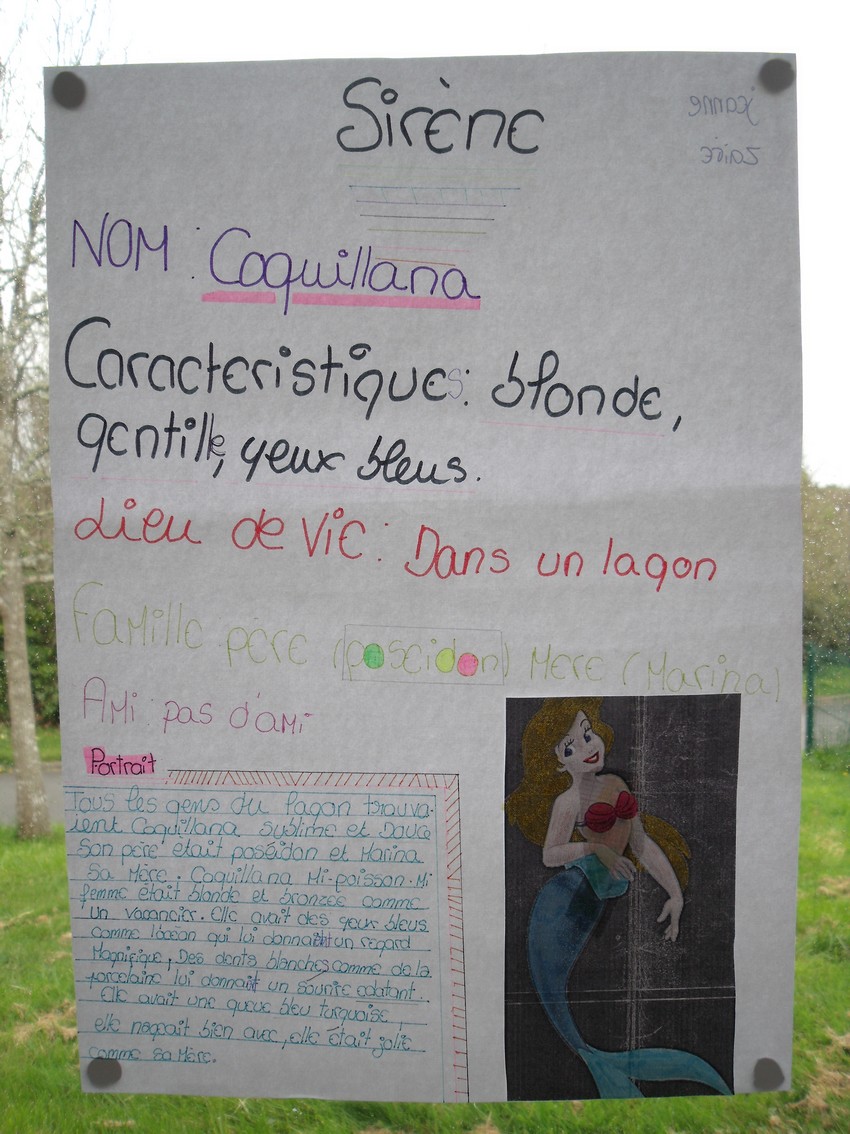 Sirène
jeanne
zaïre
NOM : Coquillana
Caracteristiques : blonde,
gentille, yeux bleus.
Lieu de vie : Dans un lagon
Famille père (poseidon) Mere (Marina)
Ami : pas d'ami
Portrait
Tous les gens du lagon trouva-
ient Coquillana sublime et Douce
Son père etait poséidon et Marina
Sa Mère. Coquillana Mi-poisson. Mi
femme était blonde et bronzée comme
un vacancier. Elle avait des yeux bleus
comme l'océan qui lui donnait un regard
Magnifique, Des dents blanches comme de la
porcelaine lui donnait un sourire eclatant..
Elle avait une queue bleu turquoise,
elle nageait bien avec, elle était jolie
comme sa Mère.